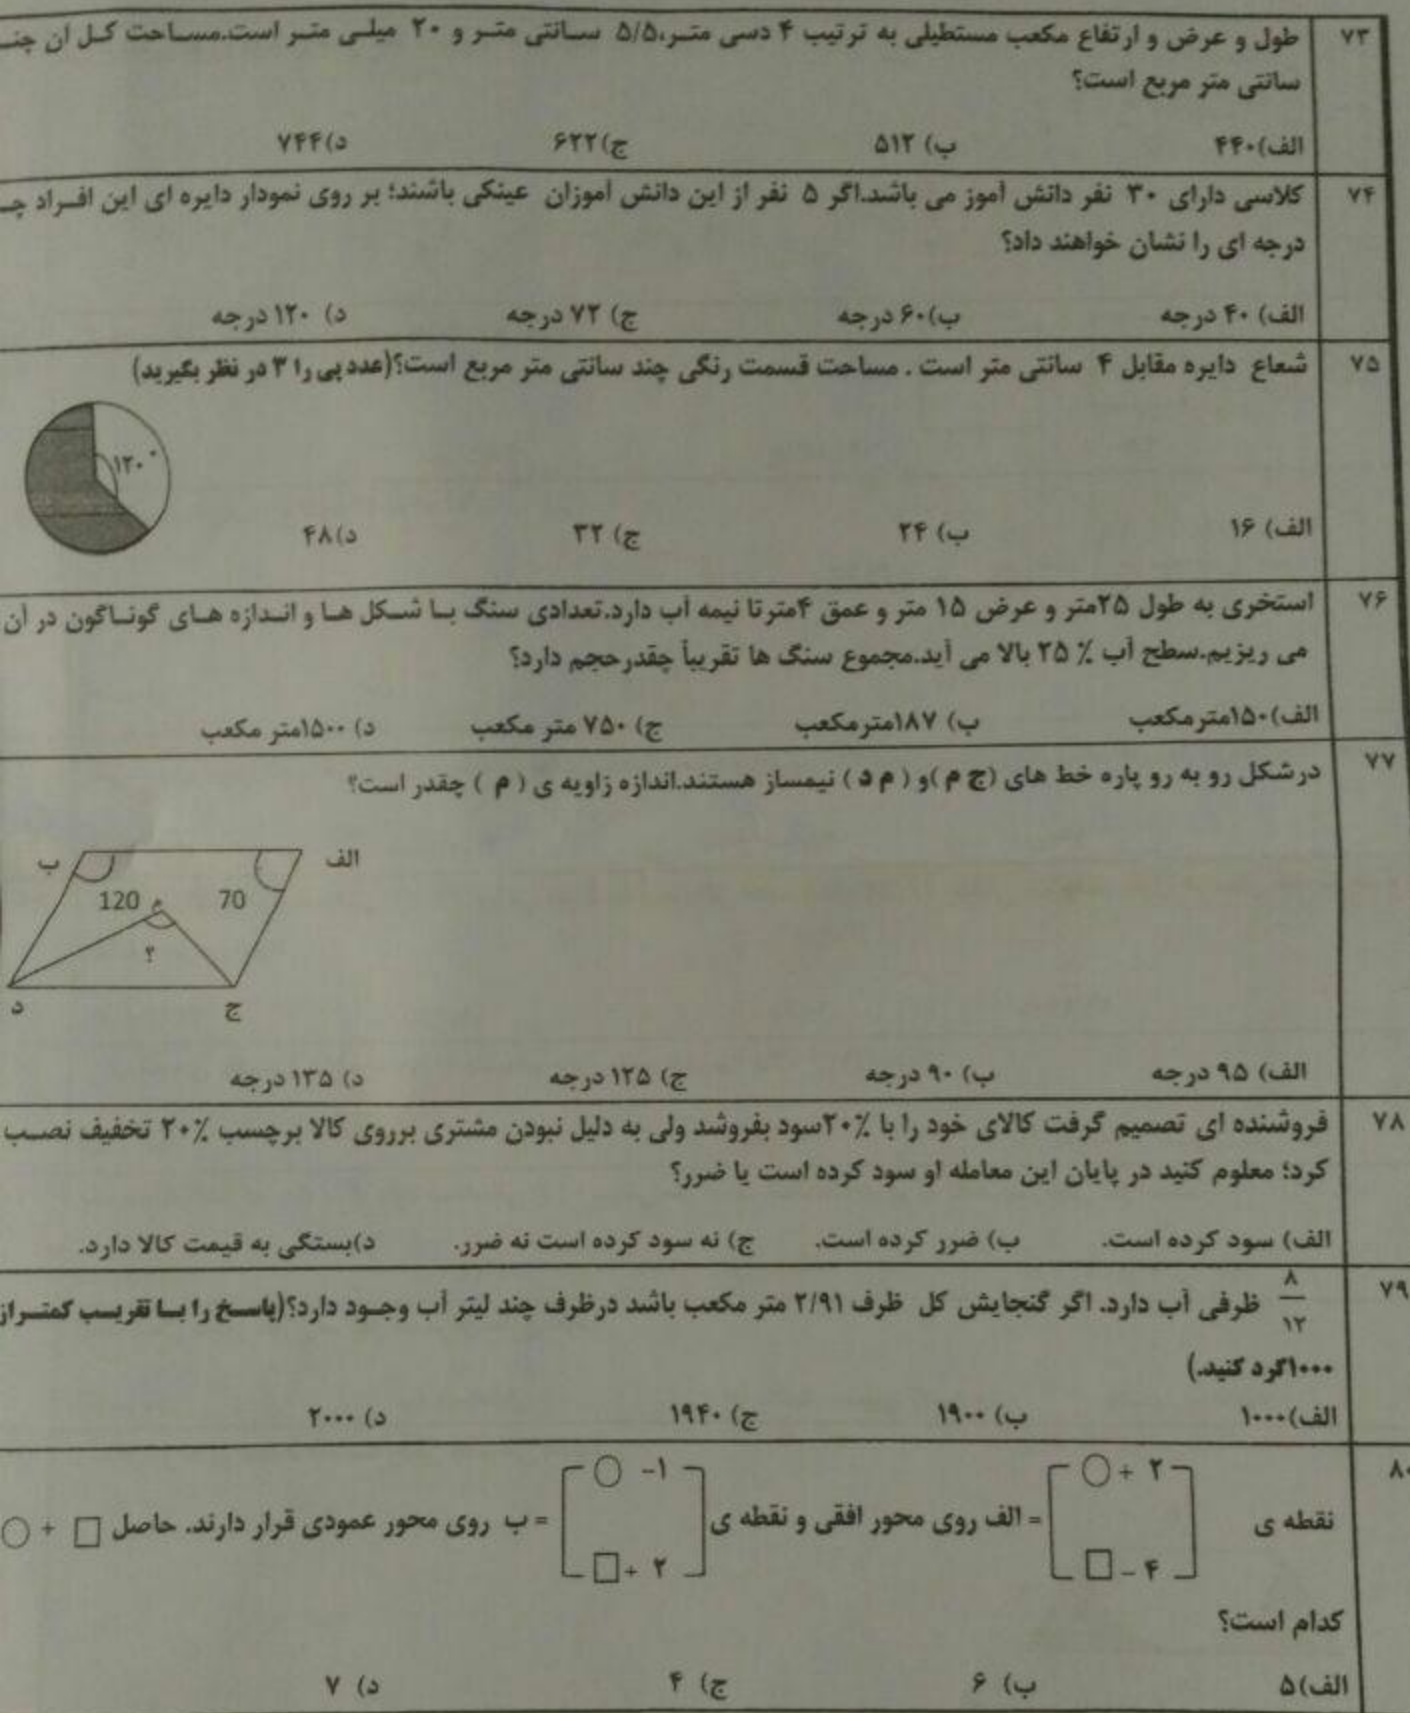 ۷۳ طول و عرض و ارتفاع مکعب مستطیلی به ترتیب ۴ دسی متر،۵/۵ سانتی متر و ۲۰ میلی متر است.مساحت کل آن
سانتی متر مربع است؟
الف)۴۴۰ ب) ۵۱۲ ج)۶۲۲ د)۷۴۴
۷۴ کلاسی دارای ۳۰ نفر دانش آموز می باشد.اگر ۵ نفر از این دانش آموزان عینکی باشند؛ بر روی نمودار دایره ای این افراد
درجه ای را نشان خواهند داد؟
الف) ۴۰ درجه ب)۶۰ درجه ج) ۷۲ درجه د) ۱۲۰ درجه
۷۵ شعاع دایره مقابل ۴ سانتی متر است . مساحت قسمت رنگی چند سانتی متر مربع است؟(عدد پی را ۳ در نظر بگیرید)
۱۲۰°
الف) ۱۶ ب) ۲۴ ج) ۳۲ د)۴۸
۷۶ استخری به طول ۲۵متر و عرض ۱۵ متر و عمق ۴متر تا نیمه آب دارد.تعدادی سنگ با شکل ها و اندازه های گوناگون در آن
می ریزیم.سطح آب ۲۵ % بالا می آید.مجموع سنگ ها تقریباً چقدرحجم دارد؟
الف)۱۵۰مترمکعب ب) ۱۸۷مترمکعب ج) ۷۵۰ متر مکعب د) ۱۵۰۰متر مکعب
۷۷ درشکل رو به رو پاره خط های (ج م )و ( م د ) نیمساز هستند.اندازه زاویه ی ( م ) چقدر است؟
ب الف
120 م 70
؟
د ج
الف) ۹۵ درجه ب) ۹۰ درجه ج) ۱۲۵ درجه د) ۱۳۵ درجه
۷۸ فروشنده ای تصمیم گرفت کالای خود را با ۲۰٪سود بفروشد ولی به دلیل نبودن مشتری برروی کالا برچسب ۲۰٪ تخفیف نصب
کرد؛ معلوم کنید در پایان این معامله او سود کرده است یا ضرر؟
الف) سود کرده است. ب) ضرر کرده است. ج) نه سود کرده است نه ضرر. د)بستگی به قیمت کالا دارد.
۷۹ ۸/۱۲ ظرفی آب دارد. اگر گنجایش کل ظرف ۲/۹۱ متر مکعب باشد درظرف چند لیتر آب وجود دارد؟(پاسخ را با تقریب کمتر از
۱۰۰۰گرد کنید.)
الف)۱۰۰۰ ب) ۱۹۰۰ ج) ۱۹۴۰ د) ۲۰۰۰
۸۰ نقطه ی [○ + ۲ □ - ۴] = الف روی محور افقی و نقطه ی [○ -۱ □ + ۲] = ب روی محور عمودی قرار دارند. حاصل □ + ○
کدام است؟
الف)۵ ب) ۶ ج) ۴ د) ۷